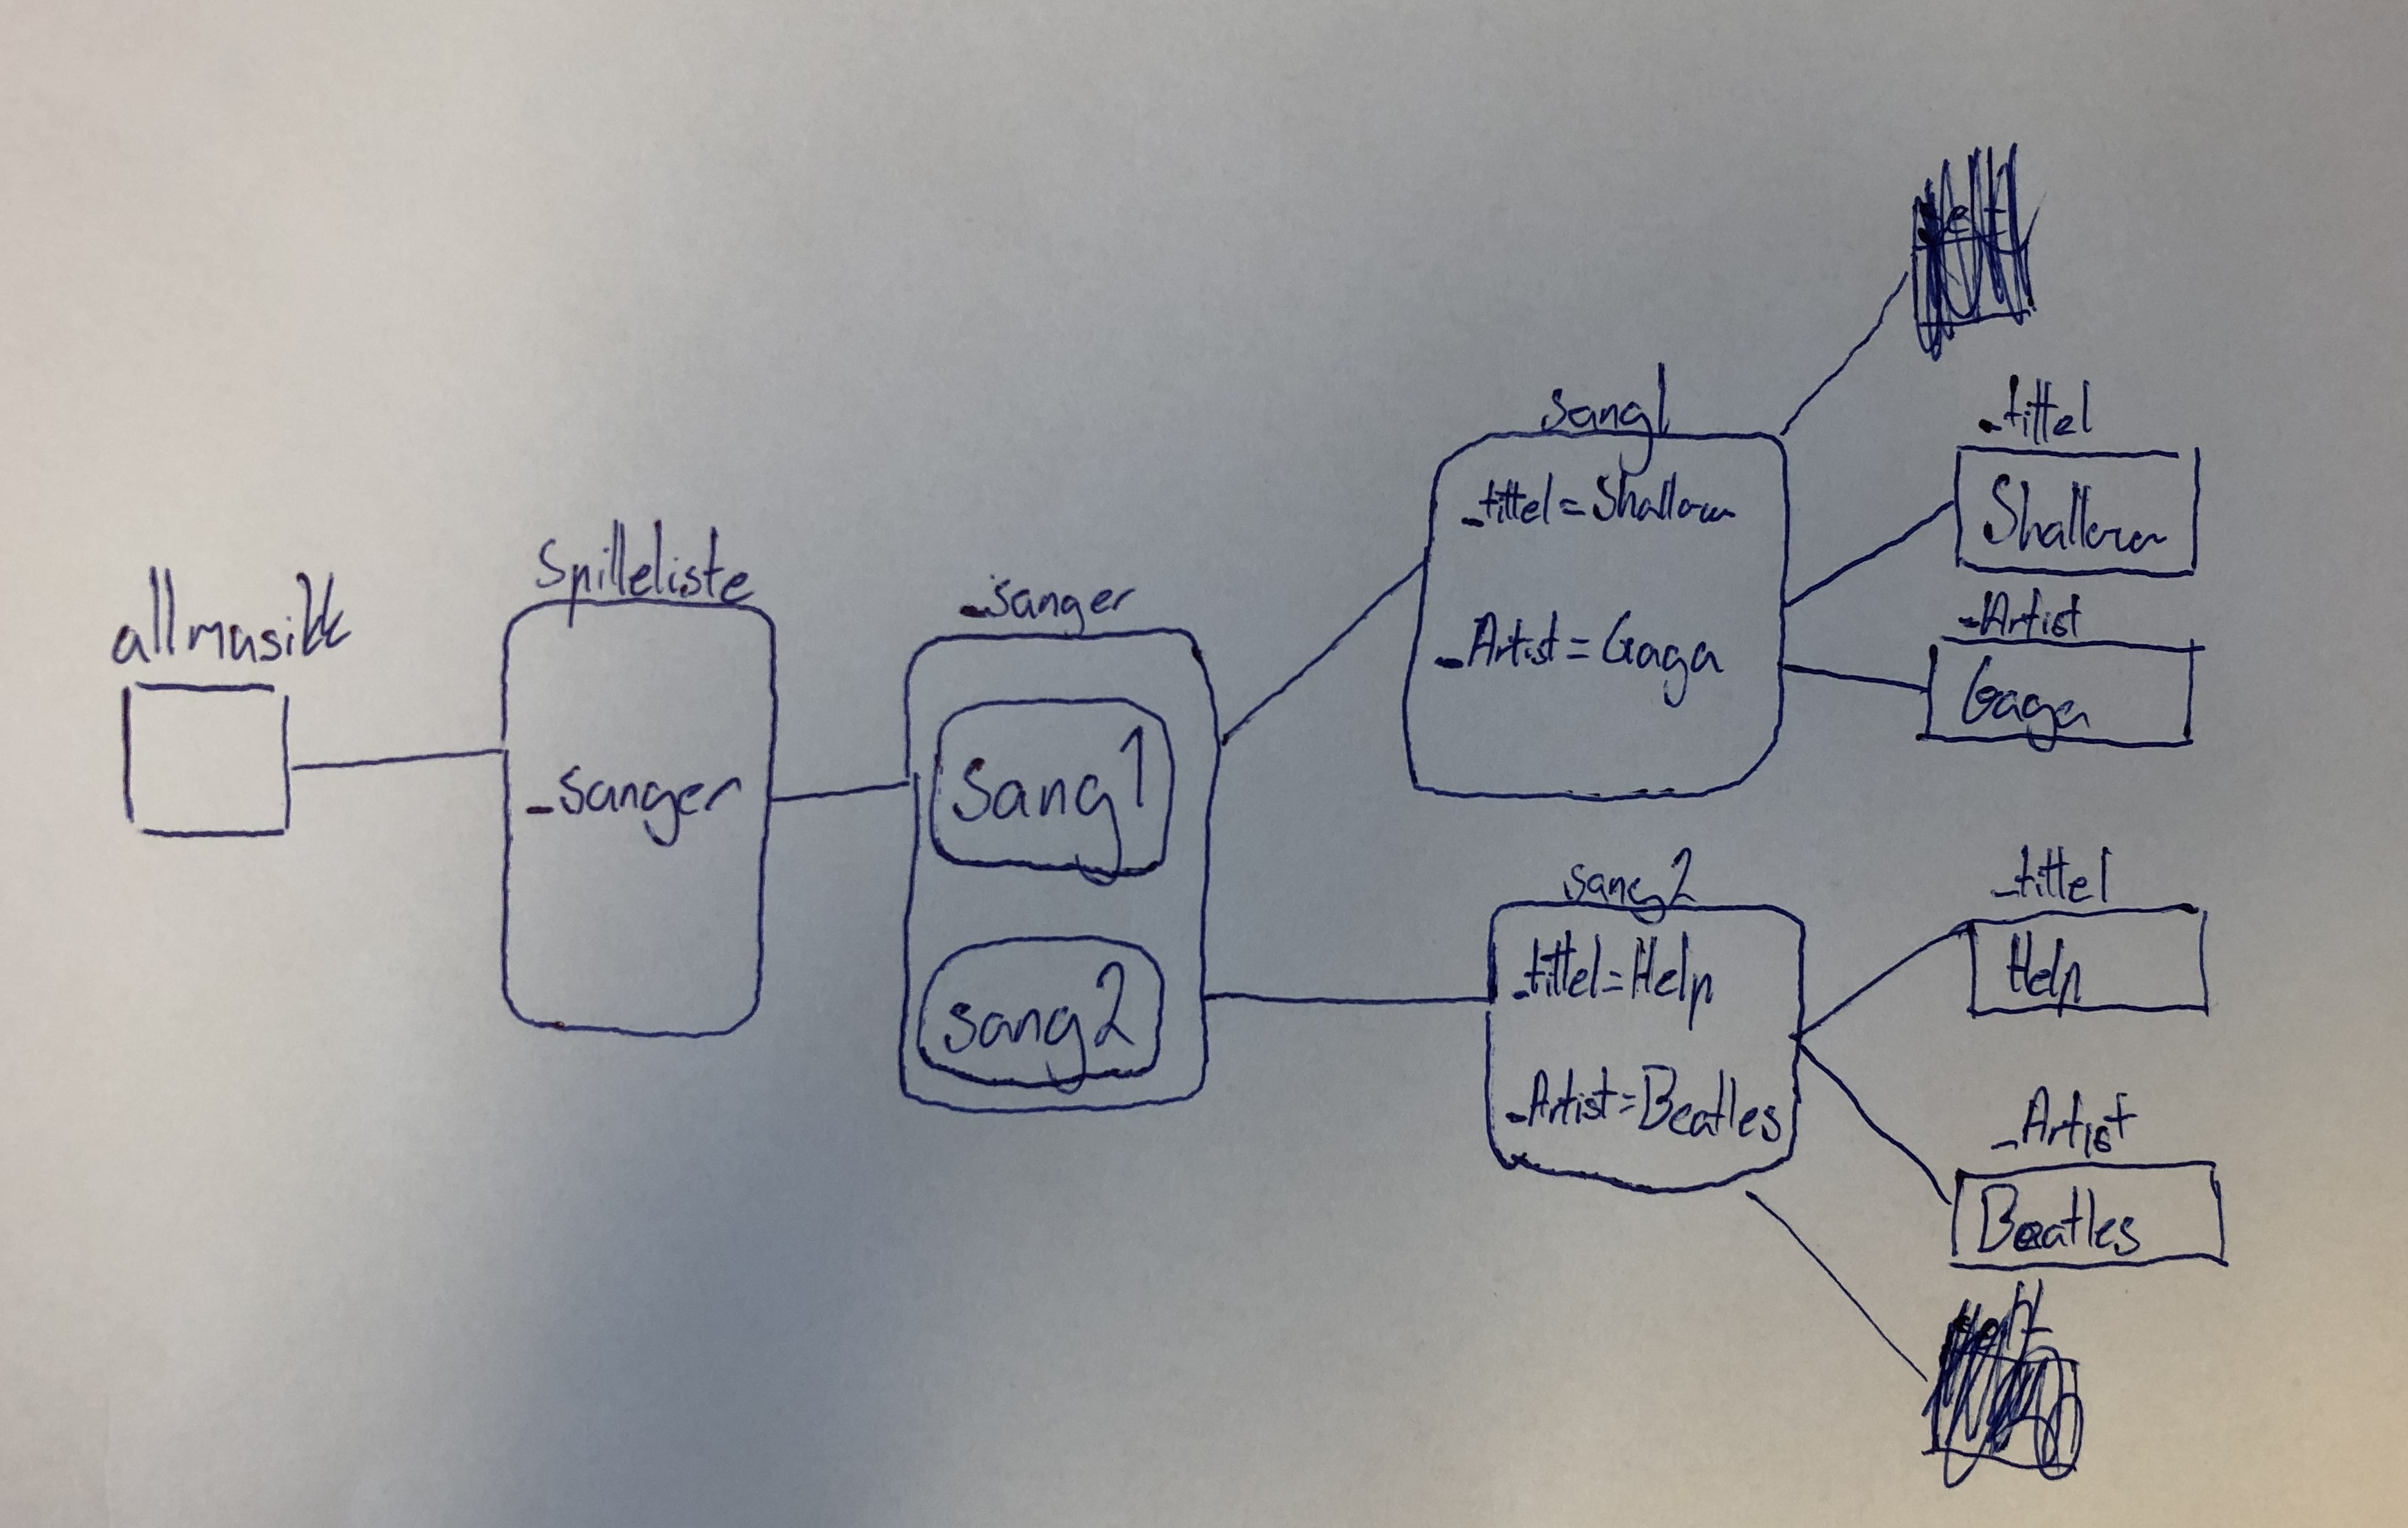 allmusikk
Spilleliste
_sanger
_sanger
sang1
sang2
sang1
_tittel = Shallow
_Artist = Gaga
_tittel
Shallow
_Artist
Gaga
sang2
_tittel = Help
_Artist = Beatles
_tittel
Help
_Artist
Beatles